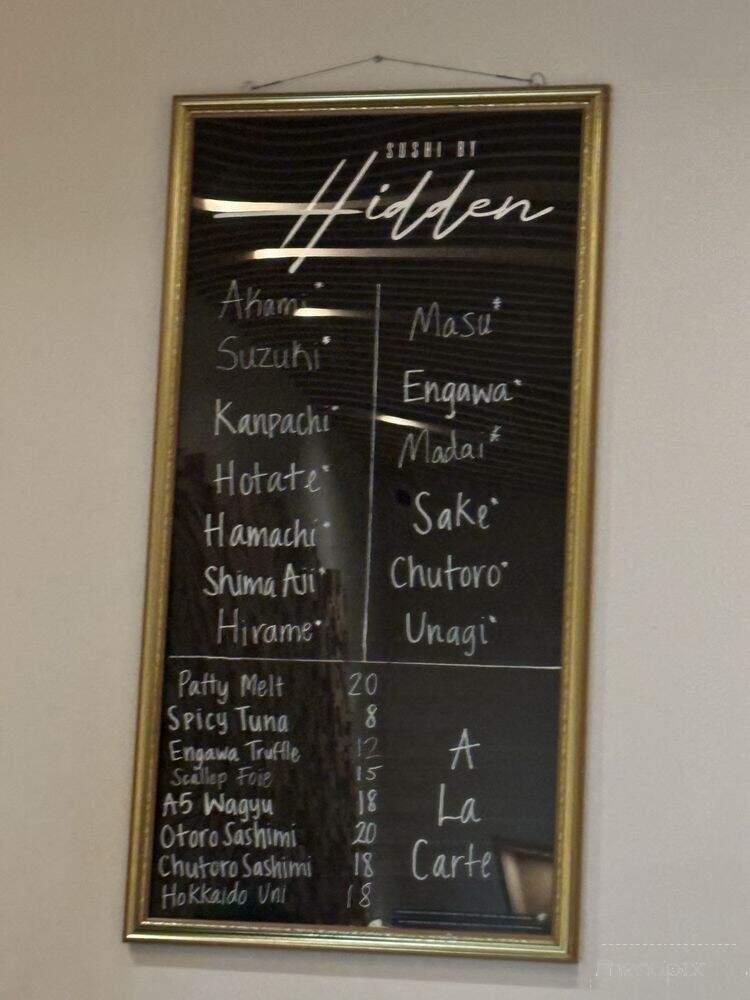 SUSHI BY
Hidden
Akami*
Suzuki*
Kanpachi*
Hotate*
Hamachi*
Shima Aji*
Hirame*
Masu*
Engawa*
Madai*
Sake*
Chutoro*
Unagi*
Patty Melt 20
Spicy Tuna 8
Engawa Truffle 12
Scallop Foie 15
A5 Wagyu 18
Otoro Sashimi 20
Chutoro Sashimi 18
Hokkaido Uni 18
A
La
Carte
menupix